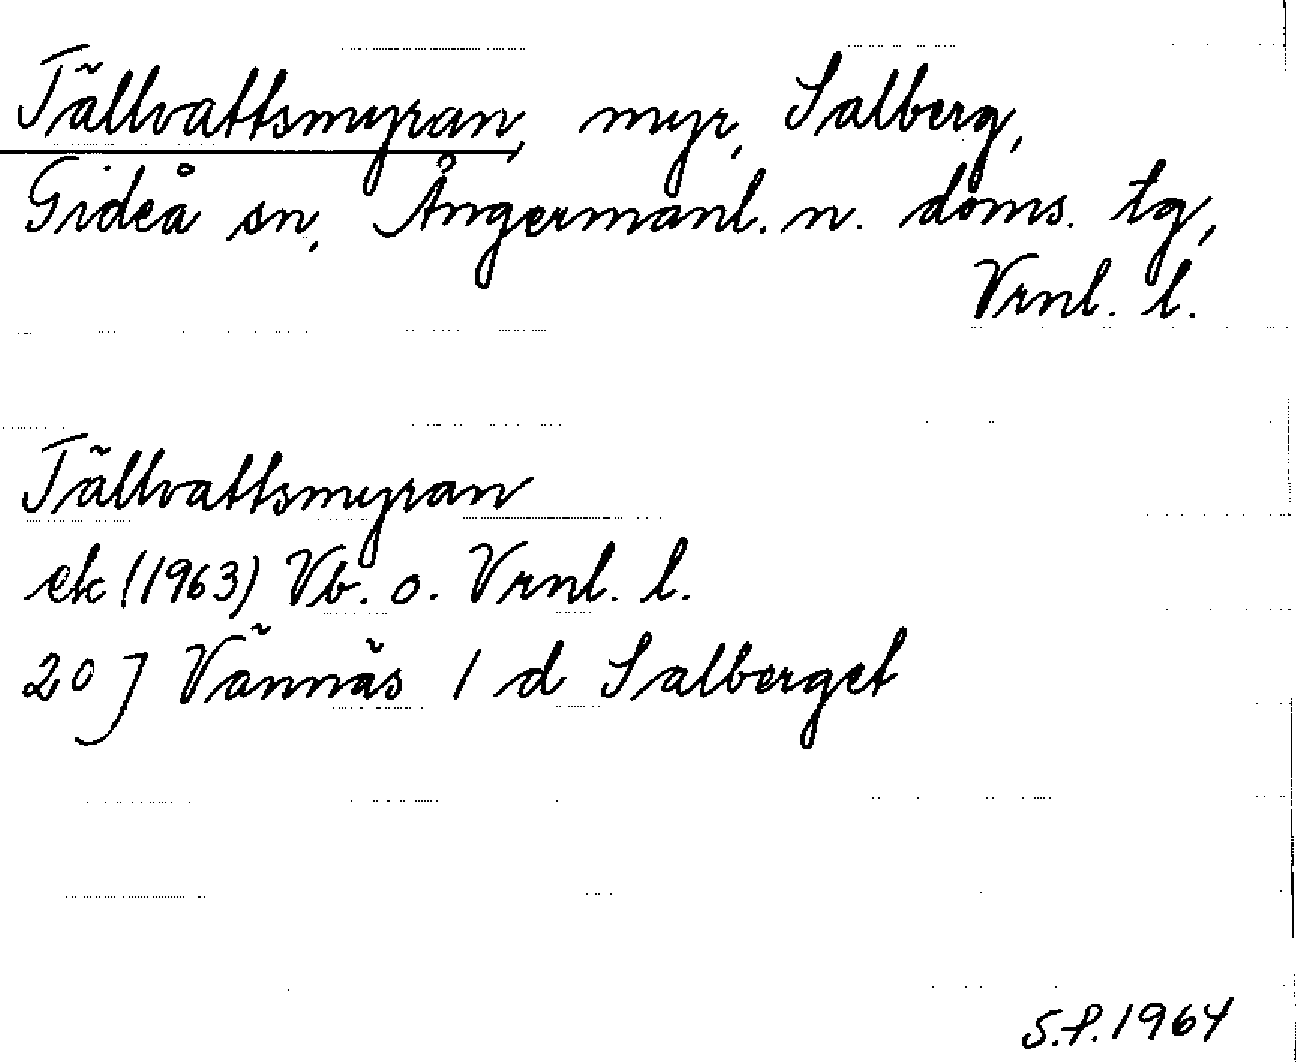 Tällvattsmyran, myr, Salberg,
Gideå sn, Ångermanl. n. doms. tg,
Vrnl. l.
Tällvattsmyran
ek (1963) Vb. o. Vrnl. l.
20 J Vännäs 1 d Salberget
S.P. 1964